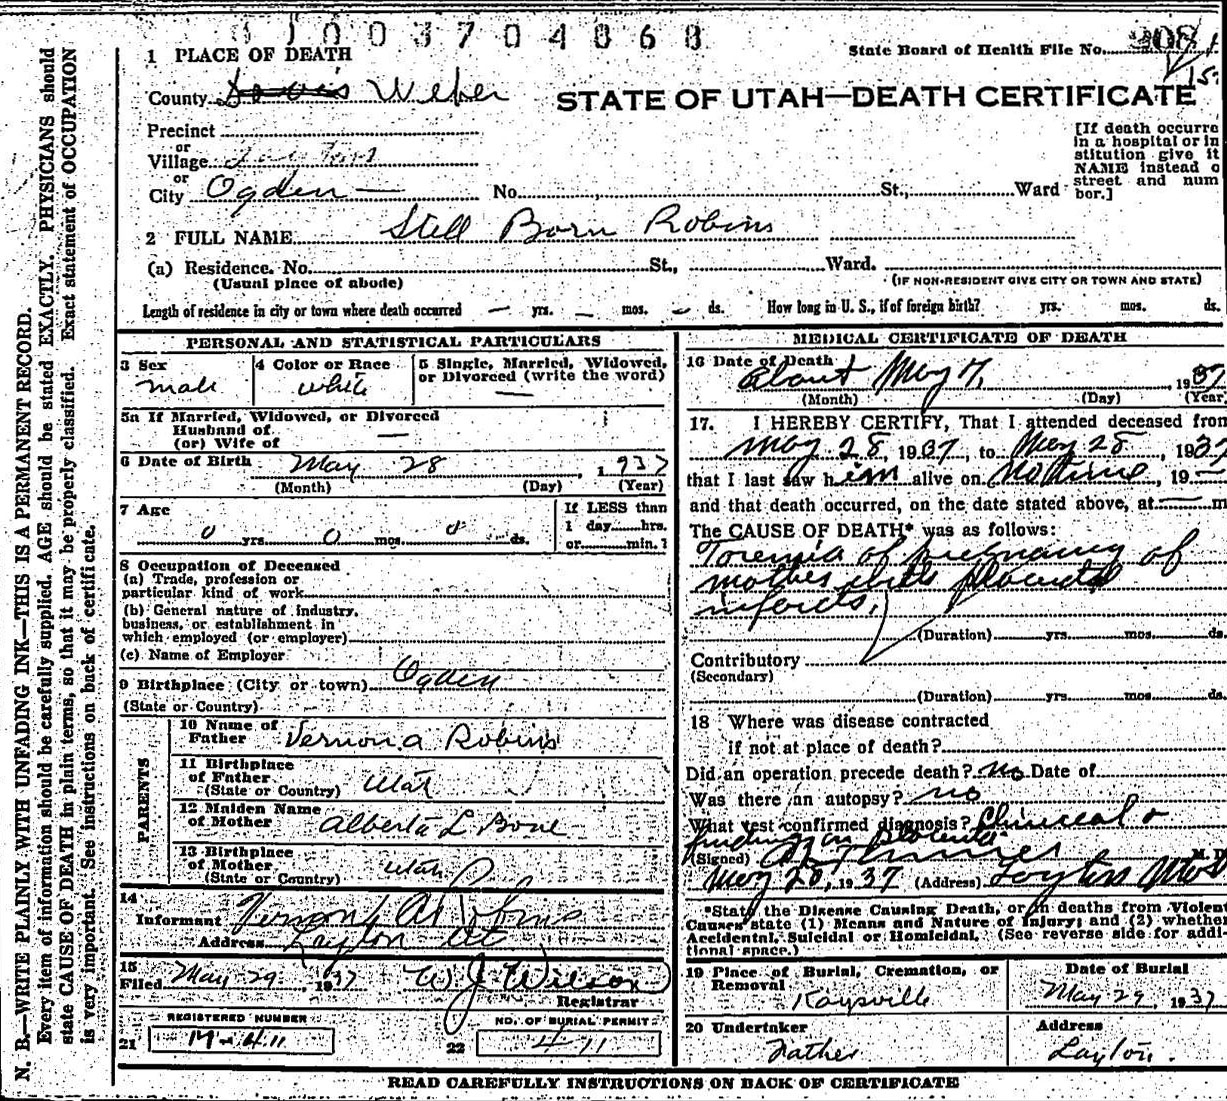 0 1 0 0 3 7 0 4 0 6 8
State Board of Health File No. 208
15-
1 PLACE OF DEATH
County Davis Weber
STATE OF UTAH—DEATH CERTIFICATE
Precinct
or
Village Layton
or
City Ogden — No. St., Ward
[If death occurre
in a hospital or in
stitution give it
NAME instead o
street and num
bor.]
2 FULL NAME Still Born Robins
(a) Residence. No. St., Ward.
(Usual place of abode) (IF NON-RESIDENT GIVE CITY OR TOWN AND STATE)
Length of residence in city or town where death occurred — yrs. — mos. — ds. How long in U. S., if of foreign birth? yrs. mos. ds.
PERSONAL AND STATISTICAL PARTICULARS
3 Sex
male
4 Color or Race
white
5 Single, Married, Widowed,
or Divorced (write the word)
—
5a If Married, Widowed, or Divorced
Husband of
(or) Wife of —
6 Date of Birth May 28, 1937
(Month) (Day) (Year)
7 Age
0 yrs. 0 mos. 0 ds.
If LESS than
1 day hrs.
or min.?
8 Occupation of Deceased
(a) Trade, profession or
particular kind of work
(b) General nature of industry,
business, or establishment in
which employed (or employer)
(c) Name of Employer
9 Birthplace (City or town) Ogden
(State or Country)
PARENTS
10 Name of
Father Vernon A Robins
11 Birthplace
of Father
(State or Country) Utah
12 Maiden Name
of Mother Alberta L Bone
13 Birthplace
of Mother
(State or Country) Utah
14
Informant Vernon A Robins
Address Layton Ut
15
Filed May 29, 1937 W J Wilson
Registrar
REGISTERED NUMBER
21 M-411
NO. OF BURIAL PERMIT
22 411
MEDICAL CERTIFICATE OF DEATH
16 Date of Death
About May 7, 1937
(Month) (Day) (Year
17. I HEREBY CERTIFY, That I attended deceased from
May 28, 1937, to May 28, 1937
that I last saw him alive on no time, 19—
and that death occurred, on the date stated above, at — m
The CAUSE OF DEATH* was as follows:
Toxemia of pregnancy of
mother with placental
infarcts.
(Duration) yrs. mos. ds.
Contributory
(Secondary)
(Duration) yrs. mos. ds.
18 Where was disease contracted
if not at place of death?
Did an operation precede death? no Date of
Was there an autopsy? no
What test confirmed diagnosis? Clinical &
findings in placenta
(Signed) M. D.
May 28, 1937 (Address) Layton
*State the Disease Causing Death, or in deaths from Violent
Causes state (1) Means and Nature of Injury; and (2) whethe
Accidental, Suicidal or Homicidal. (See reverse side for addi-
tional space.)
19 Place of Burial, Cremation, or
Removal
Kaysville
Date of Burial
May 29, 1937
20 Undertaker
Father
Address
Layton.
READ CAREFULLY INSTRUCTIONS ON BACK OF CERTIFICATE
N. B.—WRITE PLAINLY WITH UNFADING INK—THIS IS A PERMANENT RECORD.
Every item of information should be carefully supplied. AGE should be stated EXACTLY. PHYSICIANS should
state CAUSE OF DEATH in plain terms, so that it may be properly classified. Exact statement of OCCUPATION
is very important. See instructions on back of certificate.